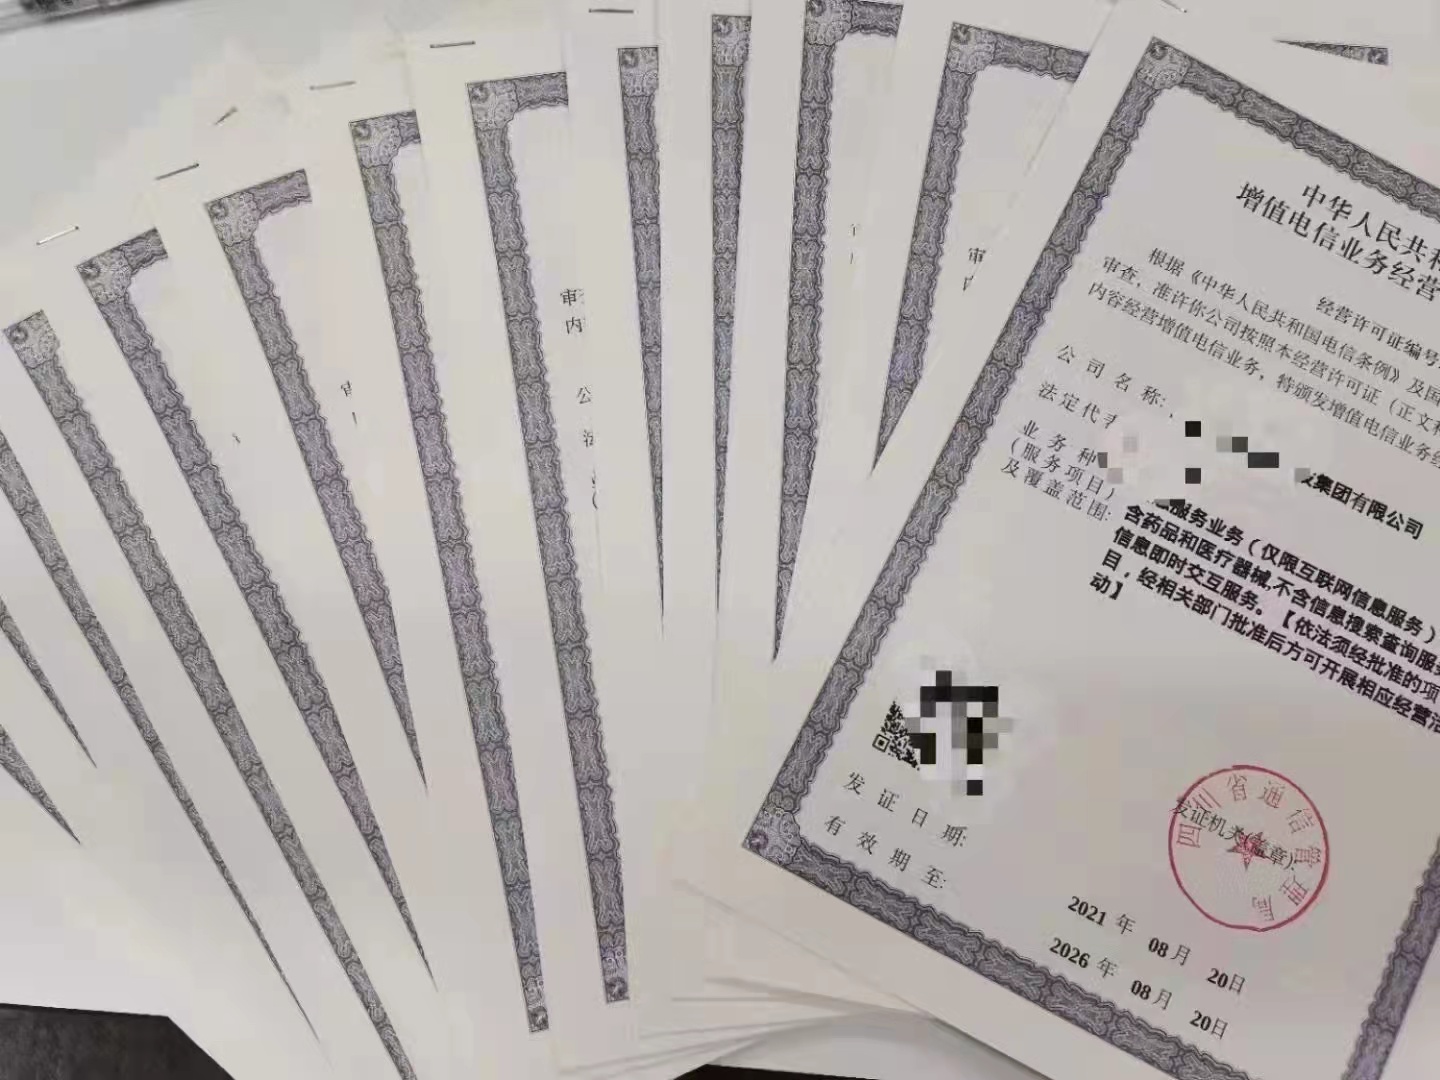 中华人民共和
增值电信业务经营
经营许可证编号
根据《中华人民共和国电信条例》及国
审查，准许你公司按照本经营许可证（正文和
内容经营增值电信业务，特颁发增值电信业务经
公司名称:
法定代
业务种
（服务项目）
及覆盖范围:
集团有限公司
服务业务（仅限互联网信息服务）
含药品和医疗器械,不含信息搜索查询服务
信息即时交互服务。【依法须经批准的项
目，经相关部门批准后方可开展相应经营活
动】
四川省通信管理局
发证机关(盖章):
发证日期:
有效期至:
2021 年 08月 20日
2026 年 08月 20日
审
内
公
法
审